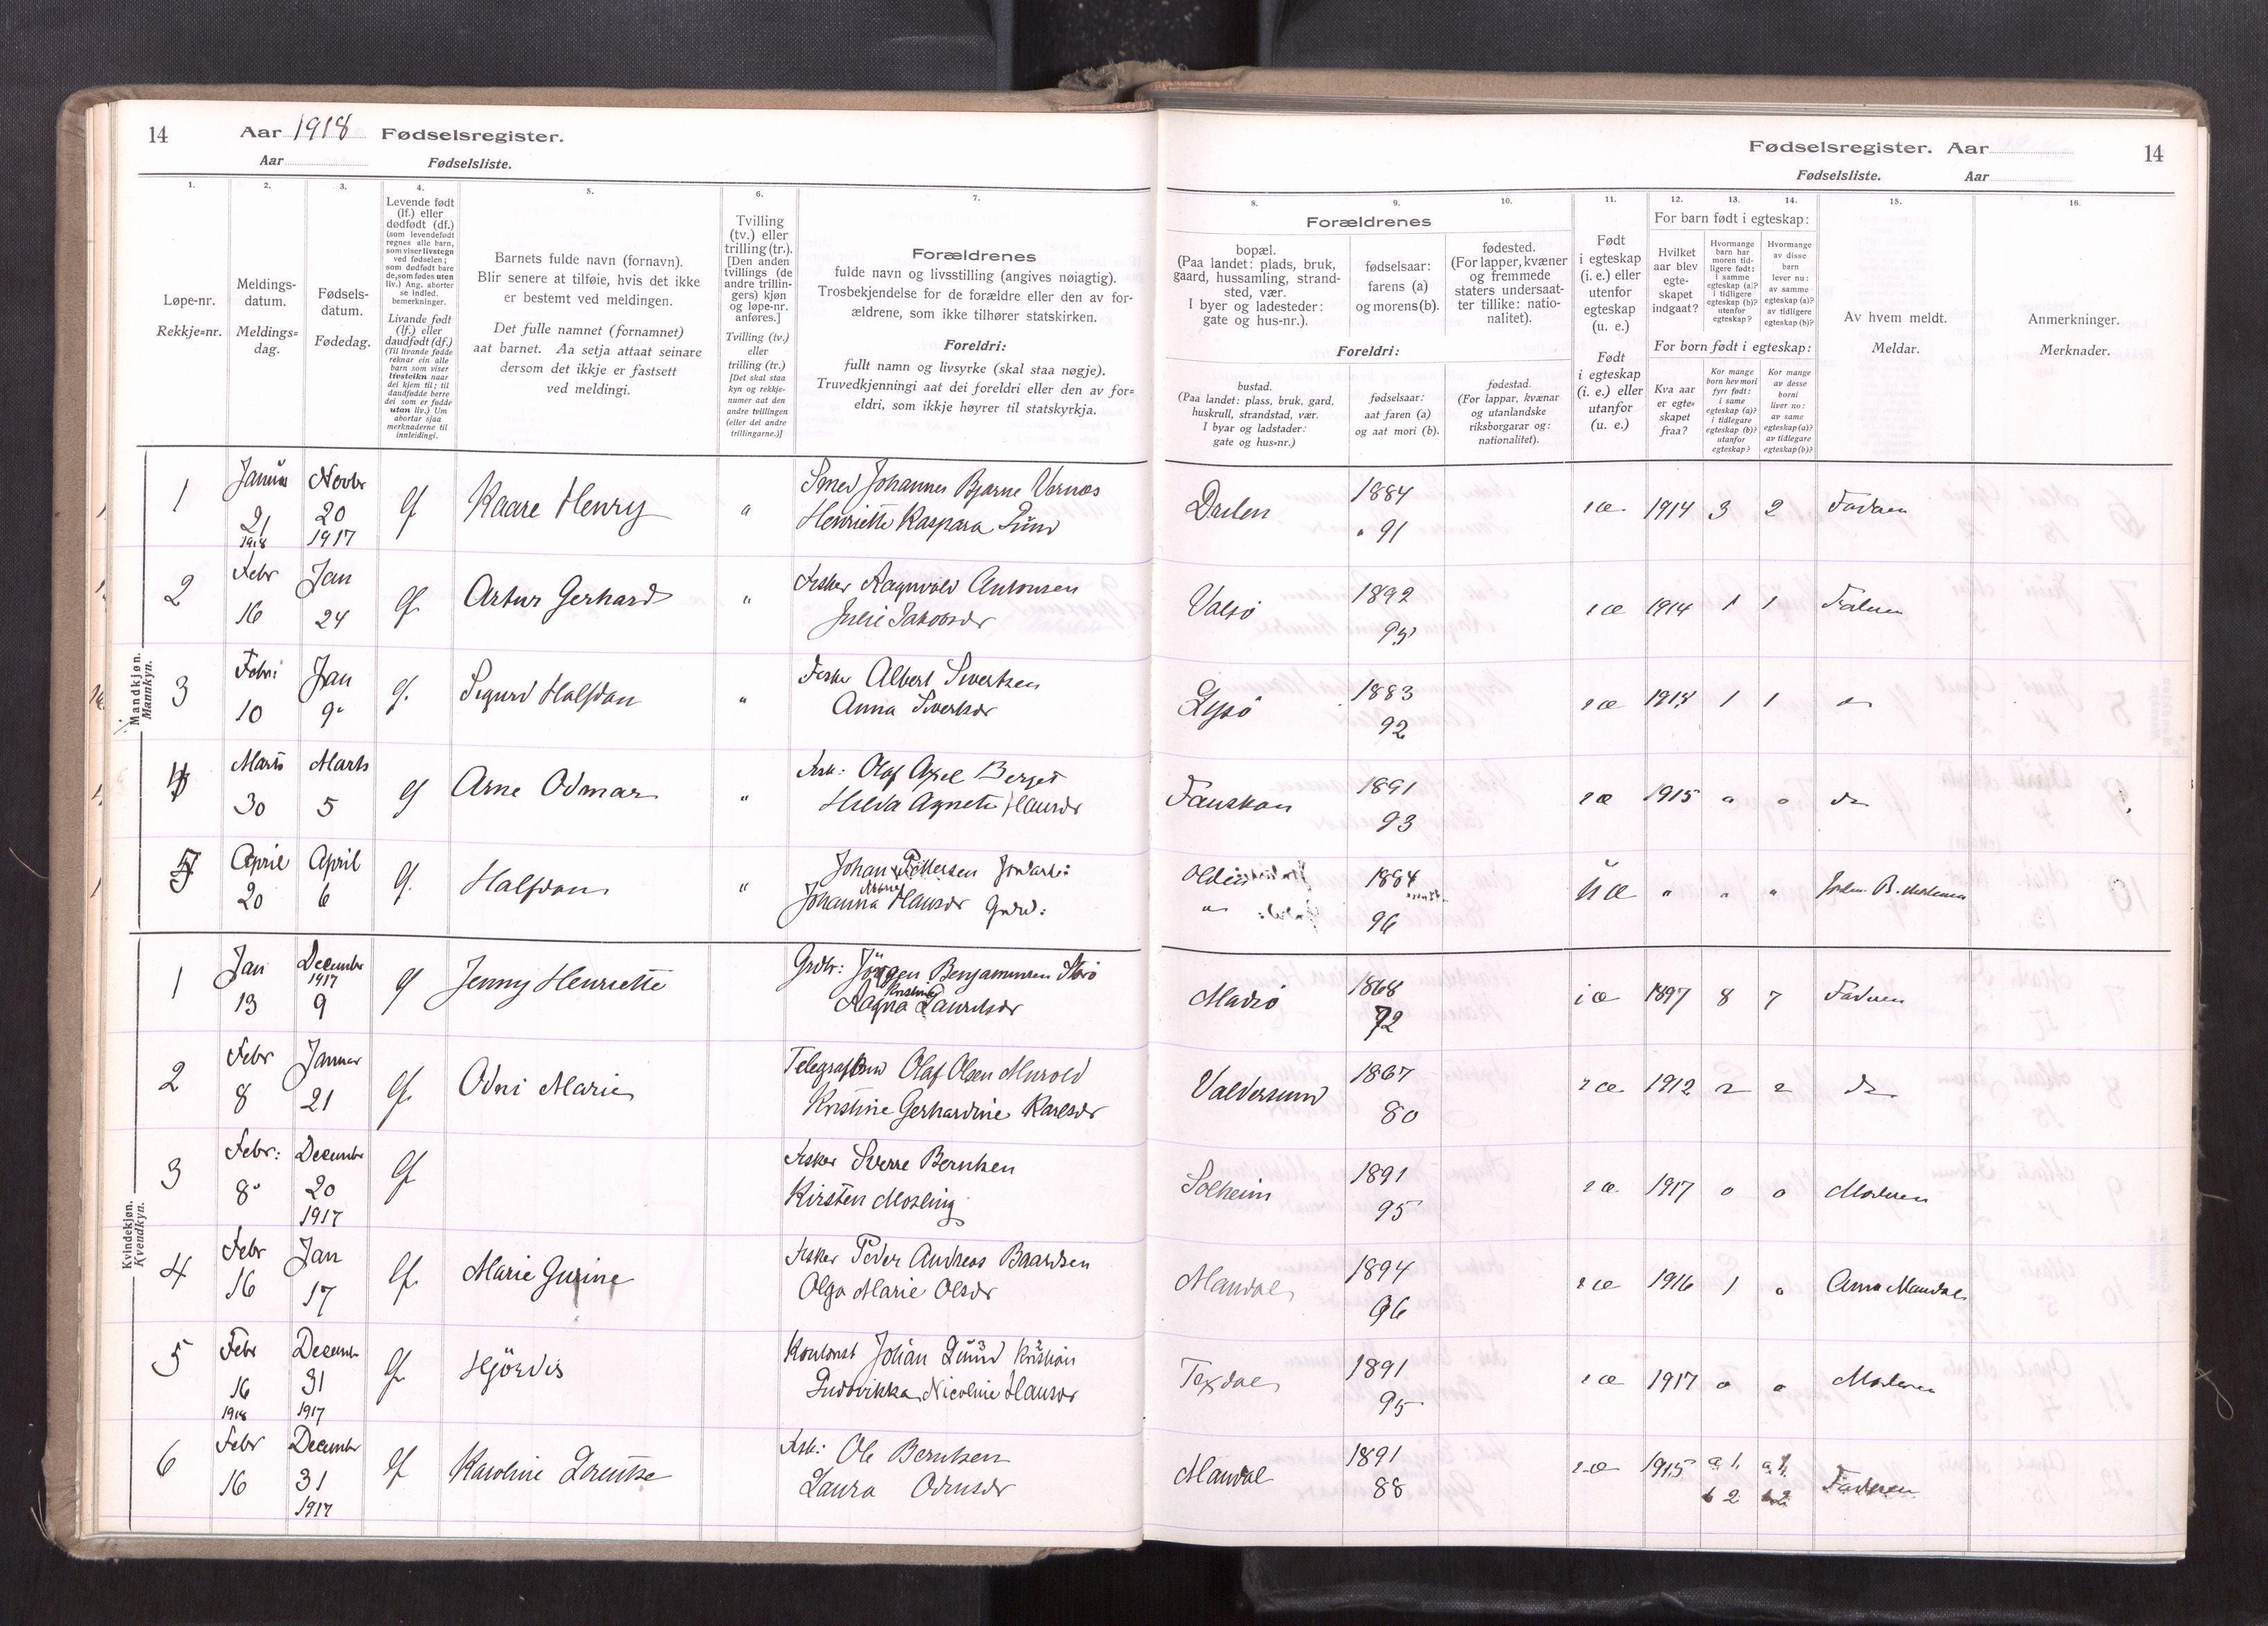 14 Aar 1918 Fødselsregister.
Aar Fødselsliste.
Fødselsregister. Aar 14
Fødselsliste. Aar
1. 2. 3. 4. 5. 6. 7. 8. 9. 10. 11. 12. 13. 14. 15. 16.
Løpe-nr.
Rekkje=nr.
Meldings-
datum.
Meldings=
dag.
Fødsels-
datum.
Fødedag.
Levende født
(lf.) eller
dødfødt (df.)
(som levendefødt
regnes alle barn,
som viser livstegn
ved fødselen;
som dødfødt bare
de, som fødes uten
liv.) Ang. aborter
se indled.
bemerkninger.
Livande født
(lf.) eller
daudfødt (df.)
(Til livande fødde
reknar ein alle
barn som viser
livsteikn naar
dei kjem til; til
daudfødde berre
dei som er fødde
utan liv.) Um
abortar sjaa
merknaderne til
innleidingi.
Barnets fulde navn (fornavn).
Blir senere at tilføie, hvis det ikke
er bestemt ved meldingen.
Det fulle namnet (fornamnet)
aat barnet. Aa setja attaat seinare
dersom det ikkje er fastsett
ved meldingi.
Tvilling
(tv.) eller
trilling (tr.).
[Den anden
tvillings (de
andre trillin-
gers) kjøn
og løpe-nr.
anføres.]
Tvilling (tv.)
eller
trilling (tr.)
[Det skal staa
kyn og rekkje-
numer aat den
andre tvillingen
(eller dei andre
trillingarne.)]
Forældrenes
fulde navn og livsstilling (angives nøiagtig).
Trosbekjendelse for de forældre eller den av for-
ældrene, som ikke tilhører statskirken.
Foreldri:
fullt namn og livsyrke (skal staa nøgje).
Truvedkjenningi aat dei foreldri eller den av for=
eldri, som ikkje høyrer til statskyrkja.
Forældrenes
bopæl.
(Paa landet: plads, bruk,
gaard, hussamling, strand-
sted, vær.
I byer og ladesteder:
gate og hus-nr.).
fødselsaar:
farens (a)
og morens (b).
fødested.
(For lapper, kvæner
og fremmede
staters undersaat-
ter tillike: natio-
nalitet).
Foreldri:
bustad.
(Paa landet: plass, bruk, gard,
huskrull, strandstad, vær.
I byar og ladstader:
gate og hus=nr.)
fødselsaar:
aat faren (a)
og aat mori (b).
fødestad.
(For lappar, kvænar
og utanlandske
riksborgarar og:
nationalitet).
Født
i egteskap
(i. e.) eller
utenfor
egteskap
(u. e.)
Født
i egteskap
(i. e.) eller
utanfor
(u. e.)
For barn født i egteskap:
Hvilket
aar blev
egte-
skapet
indgaat?
Hvormange
barn har
moren tid-
ligere født:
i samme
egteskap (a)?
i tidligere
egteskap (b)?
utenfor
egteskap?
Hvormange
av disse
barn
lever nu:
av samme
egteskap (a)?
av tidligere
egteskap (b)?
For born født i egteskap:
Kva aar
er egte=
skapet
fraa?
Kor mange
born hev mori
fyrr født:
i same
egteskap (a)?
i tidlegare
egteskap (b)?
utanfor
egteskap?
Kor mange
av desse
borni
liver no:
av same
egteskap (a)?
av tidlegare
egteskap (b)?
Av hvem meldt.
Meldar.
Anmerkninger.
Merknader.
Mandkjøn.
Mannkyn.
1 Novbr Smed Johannes Bjarne 1884
21 20 lf Kaare Henry " Henriette Kaspara Lund 91 ie 1914 3 2 Faderen
1918 1917
2 Febr Jan Fisker Ragnvald Antonsen 1892
16 24 lf Artur Gerhard " Julie Valsø ie 1914 1 1 Faderen
3 Jan Albert Sivertsen 1883
10 9 lf. Sigurd Halfdan " Anna Lysø 92 ie 1 1
4 Marts Marts Fisk: Olaf Axel Berget 1891
30 5 lf Arne Odmar " Hilda Agnete 93 ie 1915 " " do
5 April April Johan 1884
20 6 lf. Halfdan " Johanna 96 " " "
Kvindekjøn.
Kvendkyn.
1 Jan Decembr Grdbr: Jörgen Benjaminsen 1868
13 1917 9 lf Jenny Henriette Ragna Kristine Madsö 72 ie 1897 8 7 Faderen
2 Febr Januar Olaf Olsen 1867
8 21 lf. Odni Marie Kristine Gerhardine Valdersund 80 ie 1912 2 2 do
3 Febr: Decembr Fisker Sverre Berntsen 1891
8 20 lf Kirsten Solheim 95 ie 1917 0 0 Moderen
1917
4 Febr Jan Fisker Peder Andreas Baardsen 1894
16 17 lf Marie Olga Marie Mandal 96 ie 1916 1 0 Mandal
5 Febr Decembr Johan 1891
16 31 lf Hjördis Ludovikka Nicoline Texdal 95 ie 1917 0 0 Moderen
1918 1917
6 Febr Decembr Fisk: Ole Berntsen 1891
16 31 lf Karoline Laura Mandal 88 ie 1915 a 1. a 1. Faderen
1917 b 2 b 2